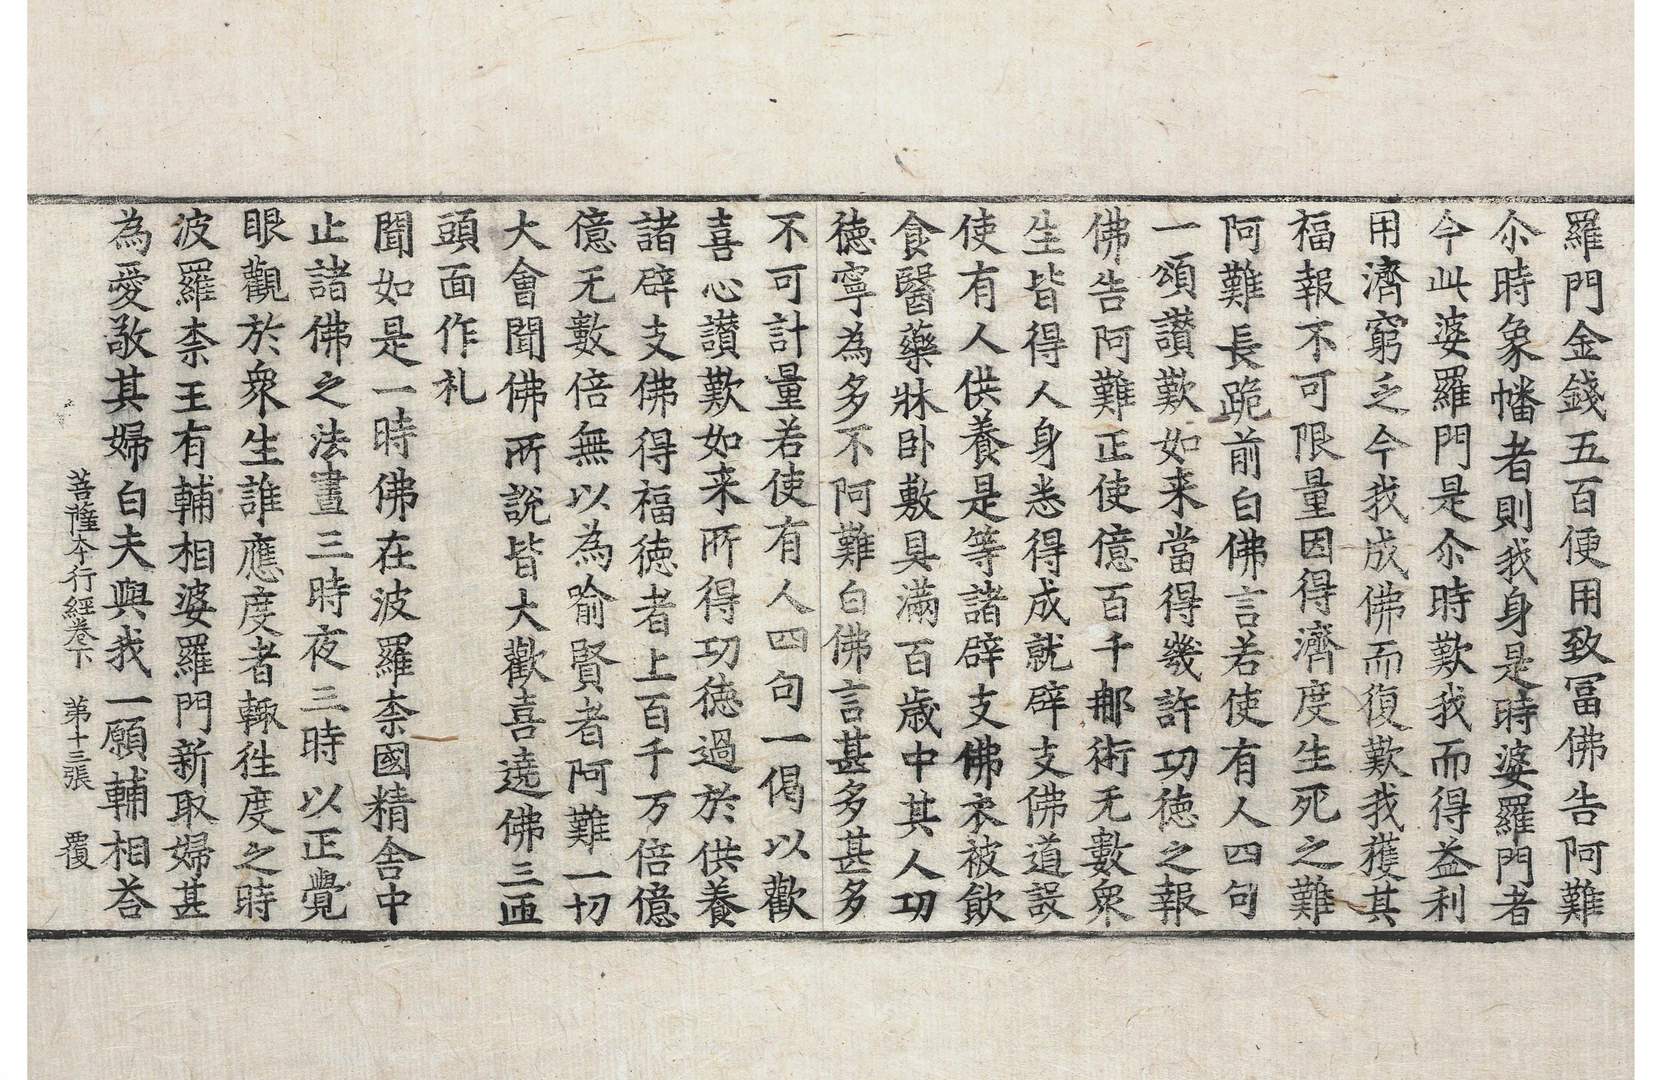 羅門金錢五百便用致冨佛告阿難
尒時象幡者則我身是時婆羅門者
今此婆羅門是尒時歎我而得益利
用濟窮乏今我成佛而復歎我獲其
福報不可限量因得濟度生死之難
阿難長跪前白佛言若使有人四句
一頌讚歎如来當得幾許功徳之報
佛告阿難正使億百千那術无數衆
生皆得人身悉得成就辟支佛道設
使有人供養是等諸辟支佛衣被飲
食醫藥牀卧敷具滿百歳中其人功
徳寧為多不阿難白佛言甚多甚多
不可計量若使有人四句一偈以歡
喜心讚歎如来所得功徳過於供養
諸辟支佛得福徳者上百千万倍億
億无數倍無以為喻賢者阿難一切
大會聞佛所說皆大歡喜遶佛三迊
頭面作礼
聞如是一時佛在波羅柰國精舍中
止諸佛之法晝三時夜三時以正覺
眼觀於衆生誰應度者輙徃度之時
波羅柰王有輔相婆羅門新取婦甚
為愛敬其婦白夫與我一願輔相荅
菩薩本行經卷下　第十三張　覆